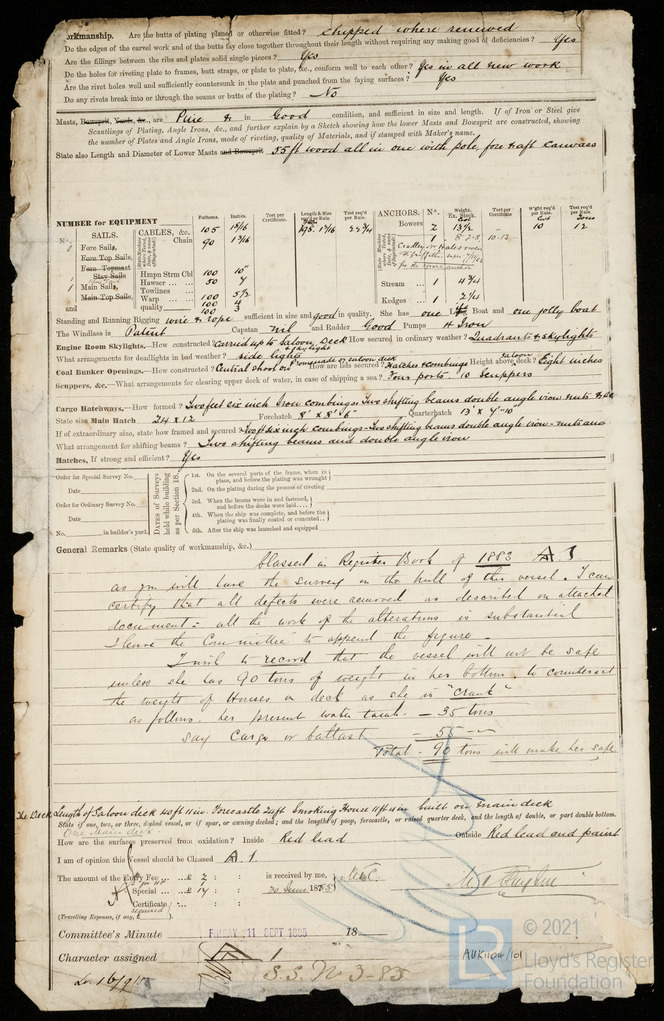 orkmanship. Are the butts of plating planed or otherwise fitted? chipped where renewed
Do the edges of the carvel work and of the butts lay close together throughout their length without requiring any making good of deficiencies? Yes
Are the fillings between the ribs and plates solid single pieces? Yes
Do the holes for riveting plate to frames, butt straps, or plate to plate, &c., conform well to each other? Yes in all new work
Are the rivet holes well and sufficiently countersunk in the plate and punched from the faying surfaces? Yes
Do any rivets break into or through the seams or butts of the plating? No
Masts, Bowsprit, Yards, &c., are Pine & in Good condition, and sufficient in size and length. If of Iron or Steel give
Scantlings of Plating, Angle Irons, &c., and further explain by a Sketch showing how the lower Masts and Bowsprit are constructed, showing
the number of Plates and Angle Irons, mode of riveting, quality of Materials, and if stamped with Maker's name.
State also Length and Diameter of Lower Masts and Bowsprit 55 ft wood all in one with pole, fore & aft canvass
NUMBER for EQUIPMENT
Fathoms. Inches. Test per Certificate. Length & Size req'd per Rule. Test req'd per Rule.
ANCHORS. Nos. Weight. Ex. Stock. Test per Certificate W'ght req'd per Rule. Test req'd per Rule.
No. SAILS. CABLES, &c.
Chain 105 15/16 195. 17/16
Bowers 2 13½ 10 12
Fore Sails, 90
Fore Top Sails,
Fore Topmast Stay Sails
Hmpn Strm Cbl 100 10"
Main Sails, Hawser 50 7
Stream 1
Main Top Sails, Towlines
Warp 100 5½
Kedges 1
and quality 100 4
100 3
Standing and Running Rigging wire & rope sufficient in size and good in quality. She has one Life Boat and one jolly boat
The Windlass is Patent Capstan nil and Rudder Good Pumps 4 Iron
Engine Room Skylights.—How constructed? carried up to saloon deck How secured in ordinary weather? Quadrants & skylights
What arrangements for deadlights in bad weather? side lights & skylights
Coal Bunker Openings.—How constructed? Central shoot on Promenade or saloon deck How are lids secured? Hatches & combings Height above deck? Eight inches
Scuppers, &c.—What arrangements for clearing upper deck of water, in case of shipping a sea? Four ports 10 scuppers
Cargo Hatchways.—How formed? Two feet six inch Iron combings. Two shifting beams double angle iron
State size Main Hatch 24 x 12 Forehatch 8' x 8' 6" Quarterhatch 13' x 7'-10"
If of extraordinary size, state how framed and secured? Two ft six inch combings-Two shifting beams double angle iron
What arrangement for shifting beams? Two shifting beams and double angle iron
Hatches, If strong and efficient? Yes
Order for Special Survey No.
Date
Order for Ordinary Survey No.
Date
No. in builder's yard.
Dates of Surveys held while building as per Section 18.
1st. On the several parts of the frame, when in place, and before the plating was wrought
2nd. On the plating during the process of riveting
3rd. When the beams were in and fastened, and before the decks were laid
4th. When the ship was complete, and before the plating was finally coated or cemented
5th. After the ship was launched and equipped
General Remarks (State quality of workmanship, &c.)
Classed in Register Book of 1883 A 1
as you will have the survey on the hull of this vessel. I can
certify that all defects were removed as described on attached
document: all the work of the alterations is substantial
I leave the Committee to append the figure
I wish to record that the vessel will not be safe
unless she has 90 tons of weight in her bottom to counteract
the weight of Houses on deck as she is "crank"
as follows. her present water tank — 35 tons
say Cargo or ballast = 55 "
Total - 90 tons will make her safe
The Deck Length of Saloon deck 40 ft 11 in. Forecastle 24 ft Smoking House 11 ft 4 in built on main deck
State if one, two, or three, decked vessel, or if spar, or awning decked; and the lengths of poop, forecastle, or raised quarter deck, and the length of double, or part double bottom.
One Main deck
How are the surfaces preserved from oxidation? Inside Red lead Outside Red lead and paint
I am of opinion this Vessel should be Classed A. 1
The amount of the Entry Fee ... £ 2 : : is received by me,
Special ... £ 14 : : 30 June 1885
Certificate ... : :
required
(Travelling Expenses, if any, £ ).
Committee's Minute FRIDAY 11 SEPT 1885 18
Character assigned 1
S.S. N 3-85
Lr. 16/9/85
AUK1104/101
LR © 2021
Lloyd's Register
Foundation